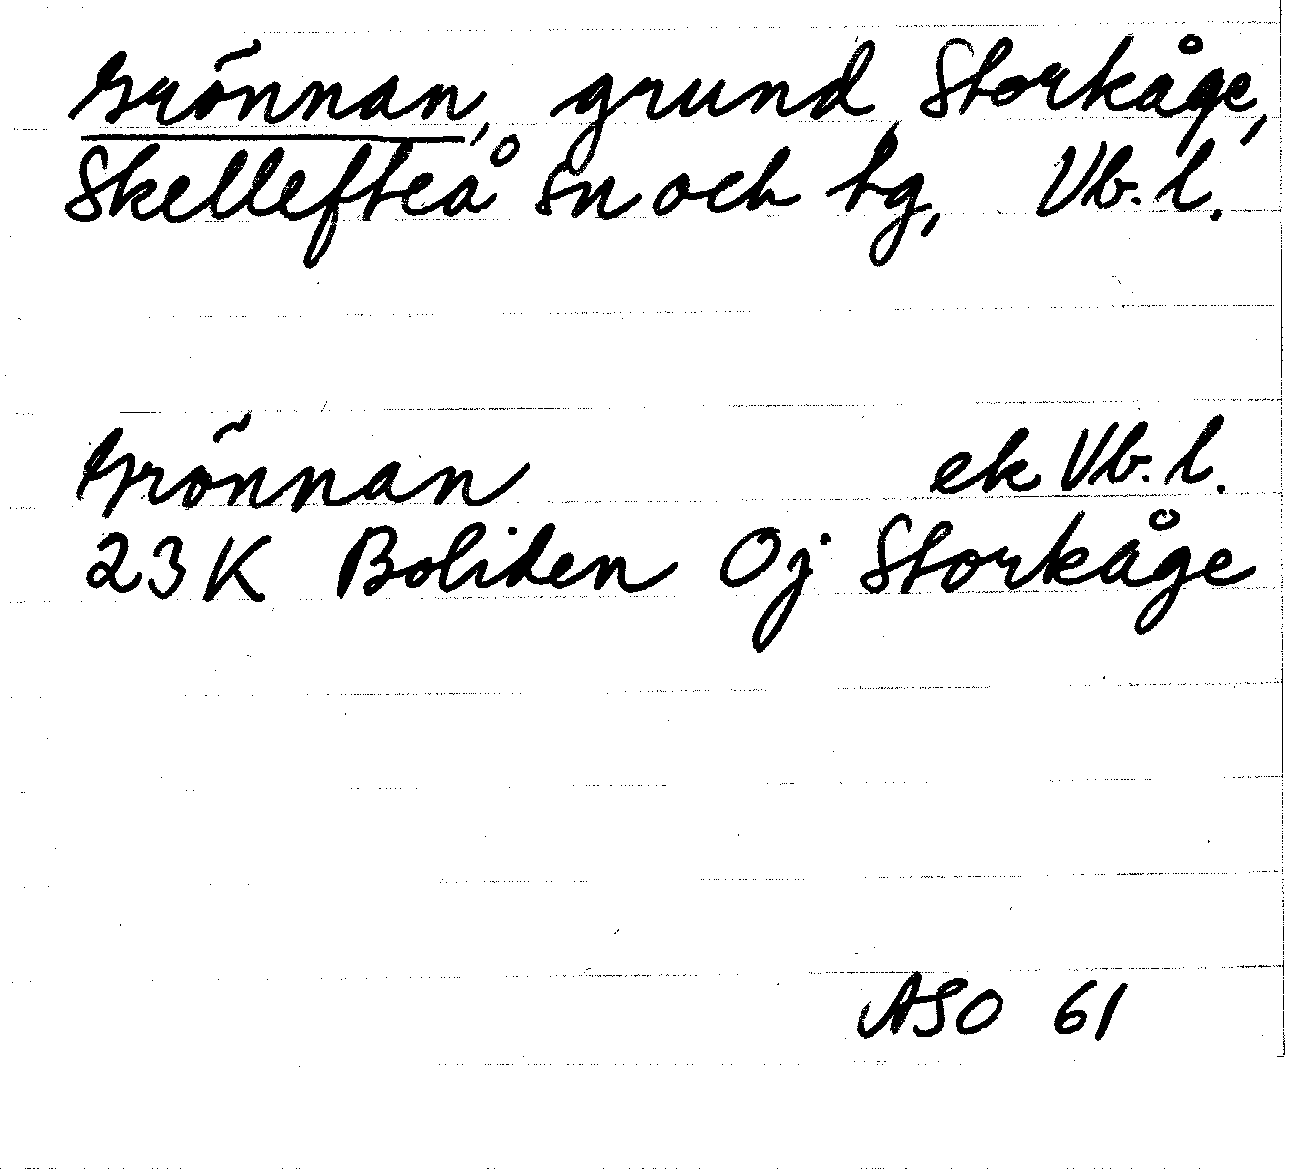 Grönnan, grund, Storkåge,
Skellefteå sn och tg, Vb. l.
Grönnan ek Vb. l.
23 K Boliden Oj Storkåge
ASO 61